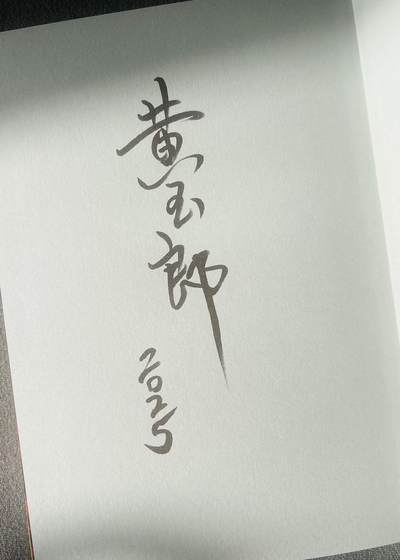 黄玉郎
2025